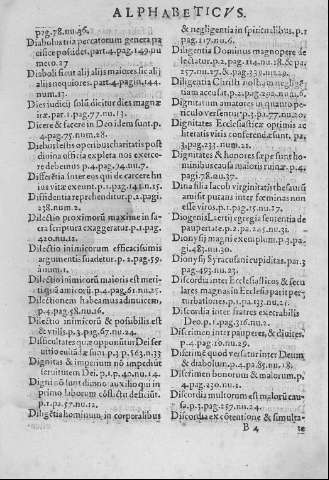 ALPHABETICVS.
pag.78.nu.26.
Diaboli tria peccatorum genera pa
cisce
mero.27
Diaboli sunt alij alijs maiores, sic alij
alijs nequiores. part.4.pagin.144.
num.13.
Dies iudicij solũ dicitur dies magnæ
iræ. par.1.pag.77.nu.13.
Dicere & facere in Deo idem sunt.p.
4.pag.75.num.28.
Diebus festis operibus charitatis post
divina officia expleta nos exerce-
re debemus. p.4.pag.74.nu.7.
Differẽtia inter eos qui de carcere hu
ius vitæ exeunt. p.1.pag.141.n.15.
Diffidentia reprehenditur.p.2.pagi.
238.num.2.
Dilectio proximorũ maxime in sa-
cra scriptura exaggeratur. p.1.pag.
420.nu.12.
Dilectio inimicorum efficacissimis
argumentis suadetur. p.2.pag.59.
ànum.1.
Dilectio inimicorũ maioris est meri-
ti quã amicorũ. p.4.pag.61.nu.25.
Dilectionem habeamus ad inuicem,
p.4.pag.58.nu.24.
Dilectio inimicorũ & possibilis est
& vtilis. p.3.pag.67.nu.24.
Difficultates quæ opponũtur Dei ser
uitio euitãdæ sunt. p.3.p.563.n.33
Dignitas & imperium nõ impediũt
seruitutem Dei. p.1.p.40.nu.14.
Digni nõ sunt diuino auxilio qui in
primo laborum cõflictu deficiũt.
p.1.pa.57.nu.12.
Diligẽtia hominum, in corporalibus
& negligentia in spiritualibus. p.1
pag.117.nu.6.
Diligentia Dominus magnopere de
lectatur. p.2.pag.114.nu.18.& pa
257.nu.27.& pag.239.nu.29.
Diligentia Christi nostra negligen-
tiam accusat. p.2.pag.290.nu.6.
Dignitatum amatores in quanto pe-
riculo versentur. p.1.pa.77.nu.20.
Dignitates Ecclesiasticæ optimis ac
literatis viris conferendæ sunt. pa.
3.pag.233.num.21.
Dignitates & honores sæpe sunt ho-
minibus causa maioris ruinæ. p.4.
pagi.78.nu.37.
Dina filia Iacob virginitatis thesaurũ
amisit putans inter fœminas non
esse viros. p.1.pag.15.nu.17.
Diogenis Laertij egregia sententia de
paupertate. p.2.pa.265.nu.31.
Dionysij magni exemplum. p.3.pa.
gi.483.nu.30.
Dionysij Syracusani cupiditas. pa.3
pag.493.nu.23.
Discordia inter Ecclesiasticos & secu
lares magnas in Ecclesia parit per-
turbationes. p.1.pa.133.nu.21.
Discordia inter fratres execrabilis
Deo. p.1.pag.316.nu.2.
Discrimen inter pauperes, & diuites.
p.4.pag.10.nu.29.
Discrimẽ quod versatur inter Deum
& diabolum. p.4.pa.85.nu.18.
Discrimen bonorum & malorum. p.
4.pag.230.nu.1.
Discordia multorum est malorũ cau-
sa. p.3.pag.257.nu.24.
Discordia ex cõtentione & simulta-
B 4